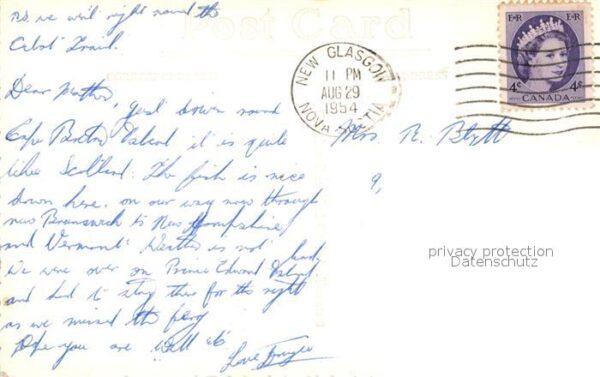 Post Card
P.S. we went right round the
Cabot Trail.
Dear Mother,
Just down round
Cape Breton Island it is quite
like Scotland. The fish is nice
down here. on our way now through
new Brunswick to New Hampshire
and Vermont. Weather is not bad,
We were over on Prince Edward Island
and had to stay there for the night
as we missed the ferry
Hope you are well
Love
NEW GLASGOW
11 PM
AUG 29
1954
NOVA SCOTIA
E R E R
4¢ 4¢
CANADA
Mrs R. Blytt
9,
privacy protection
Datenschutz